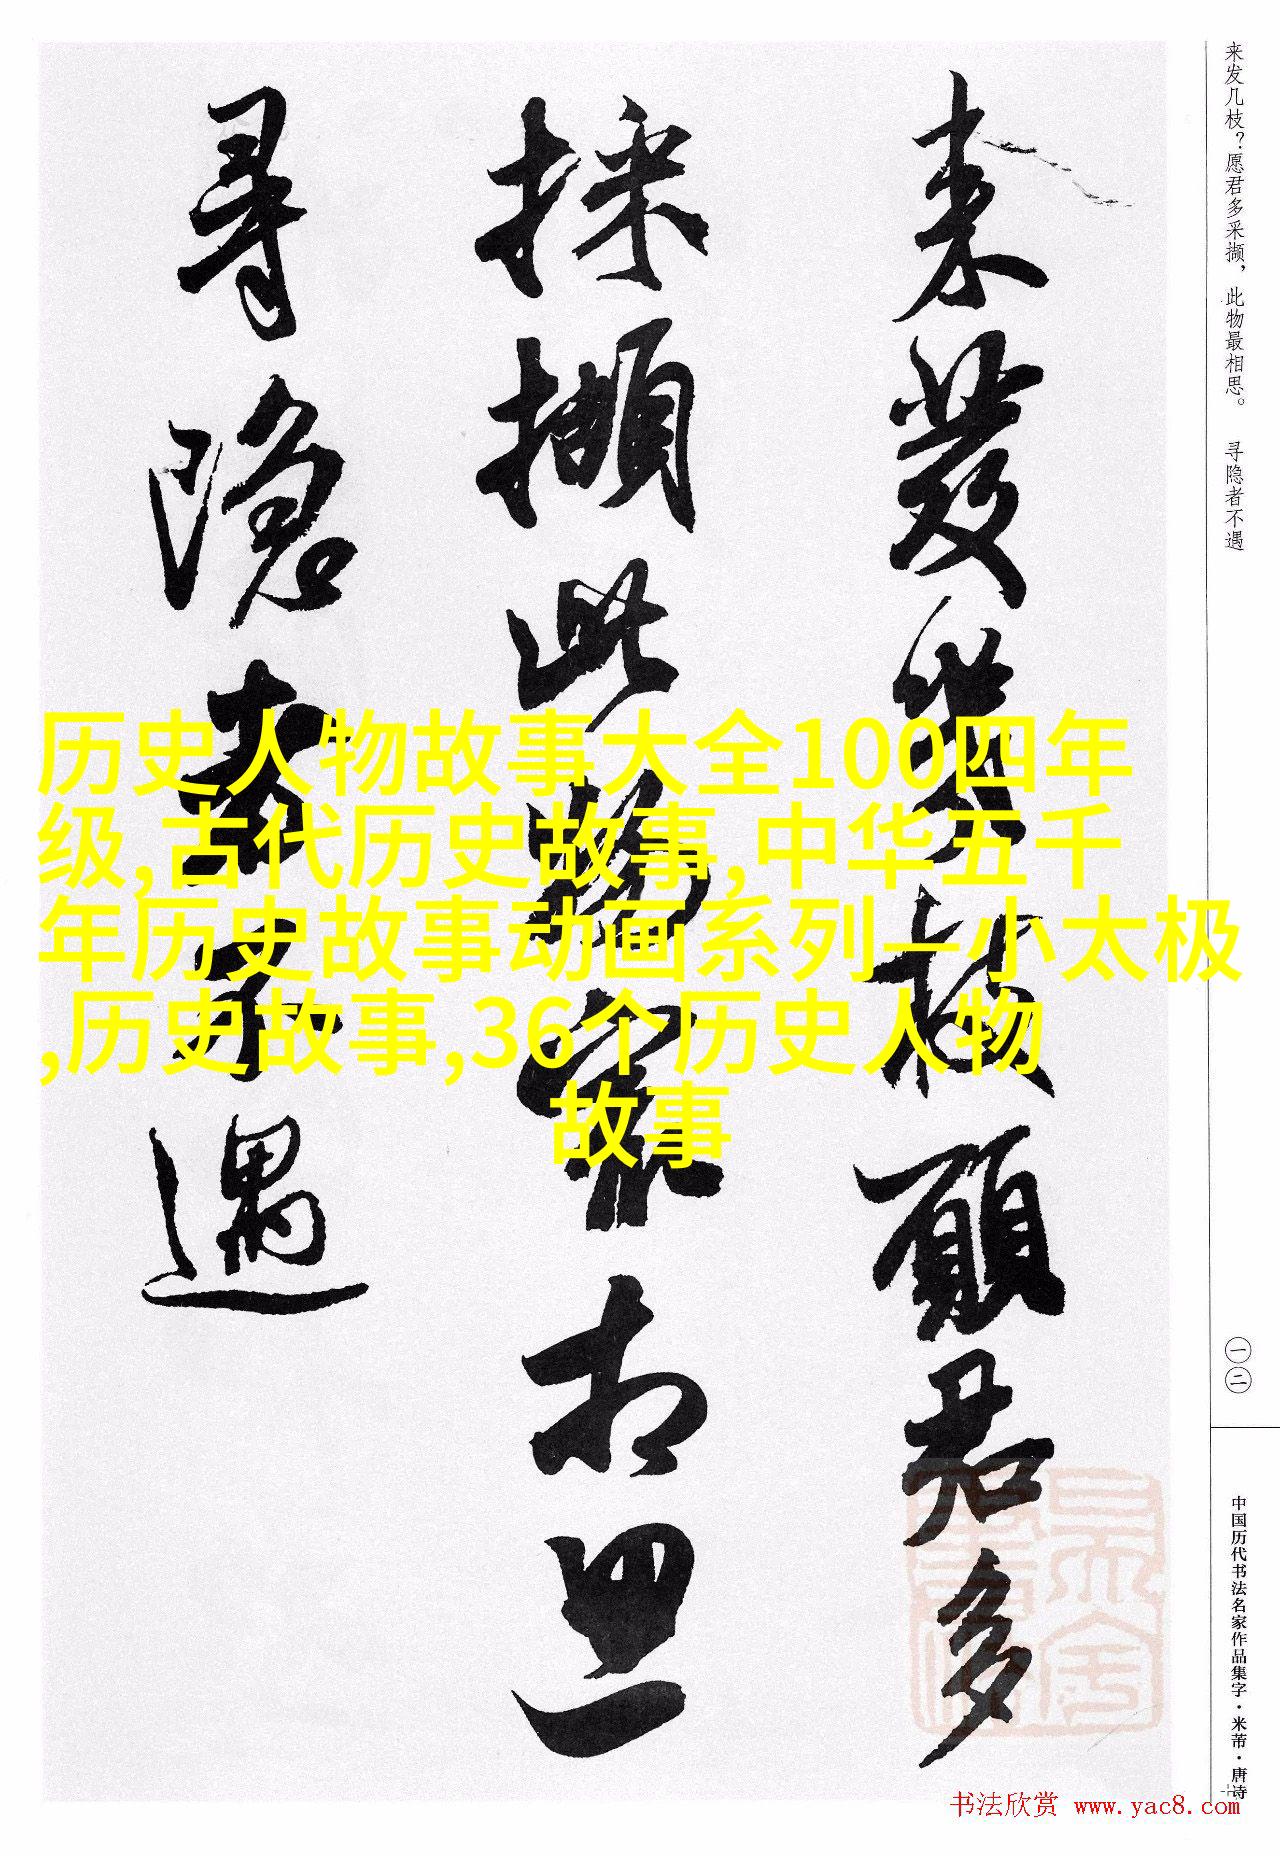 来发几枝？愿君多采撷，此物最相思。 寻隐者不遇
一二
中国历代书法名家作品集字·米芾·唐诗
来發幾枝願君多
採擷此物最相思
尋隐者不遇
历史人物故事大全100四年
级,古代历史故事,中华五千
年历史故事动画系列—小太极
,历史故事,36个历史人物
故事
书法欣赏 www.yac8.com